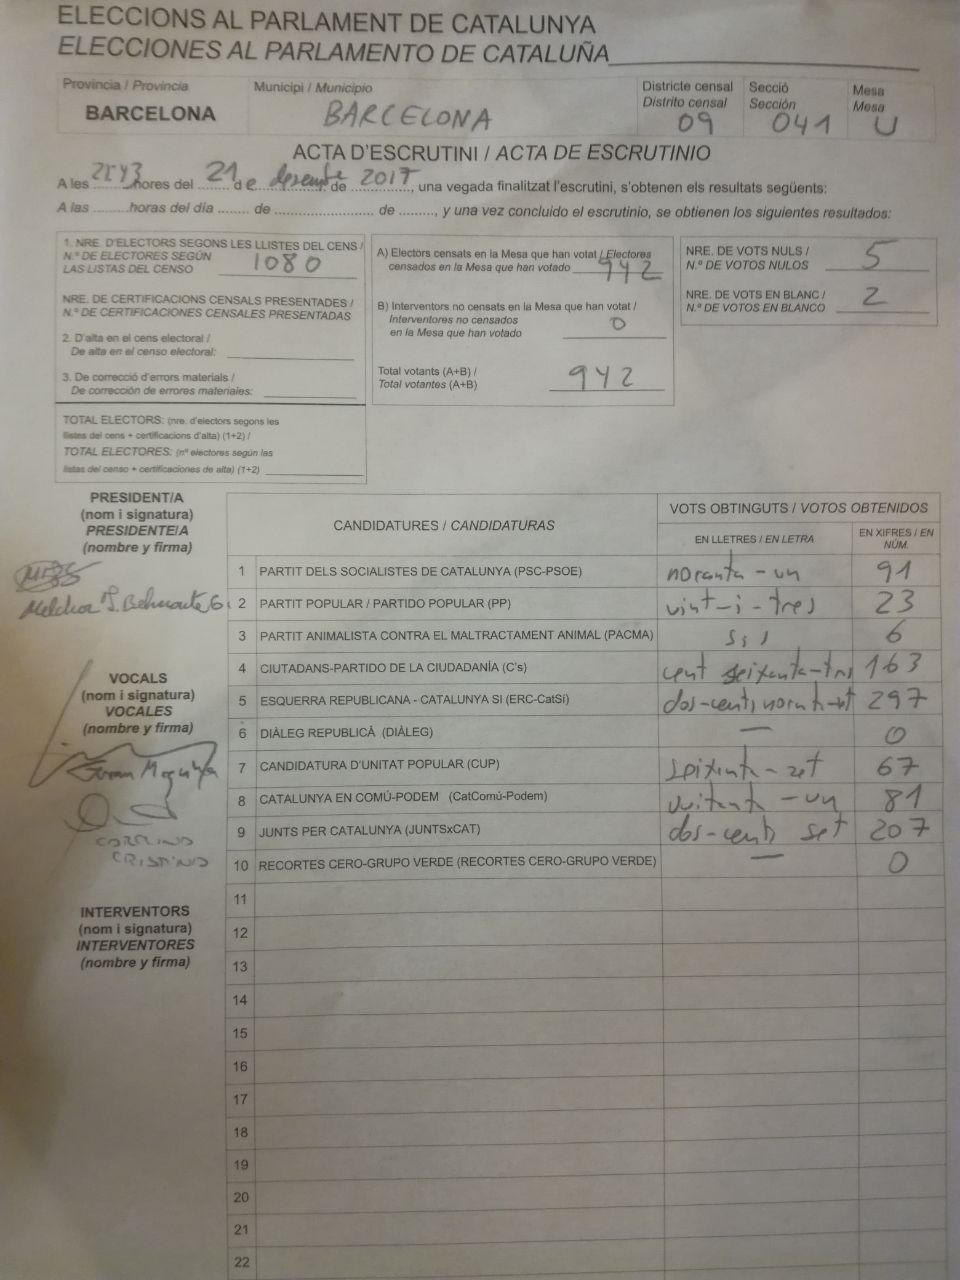 ELECCIONS AL PARLAMENT DE CATALUNYA
ELECCIONES AL PARLAMENTO DE CATALUÑA
Provincia / Provincia
BARCELONA
Municipi / Municipio
BARCELONA
Districte censal
Distrito censal
09
Secció
Sección
041
Mesa
Mesa
U
ACTA D'ESCRUTINI / ACTA DE ESCRUTINIO
A les hores del 21 de desembre de 2017, una vegada finalitzat l'escrutini, s'obtenen els resultats següents:
A las .........horas del día ........ de ........................ de ........., y una vez concluido el escrutinio, se obtienen los siguientes resultados:
1. NRE. D'ELECTORS SEGONS LES LLISTES DEL CENS /
N.º DE ELECTORES SEGÚN
LAS LISTAS DEL CENSO
1080
NRE. DE CERTIFICACIONS CENSALS PRESENTADES /
N.º DE CERTIFICACIONES CENSALES PRESENTADAS
2. D'alta en el cens electoral /
De alta en el censo electoral:
3. De correcció d'errors materials /
De corrección de errores materiales:
TOTAL ELECTORS: (nre. d'electors segons les
llistes del cens + certificacions d'alta) (1+2) /
TOTAL ELECTORES: (nº electores según las
listas del censo + certificaciones de alta) (1+2)
A) Electors censats en la Mesa que han votat / Electores
censados en la Mesa que han votado 942
B) Interventors no censats en la Mesa que han votat /
Interventores no censados
en la Mesa que han votado
0
Total votants (A+B) /
Total votantes (A+B)
942
NRE. DE VOTS NULS /
N.º DE VOTOS NULOS
5
NRE. DE VOTS EN BLANC /
N.º DE VOTOS EN BLANCO
2
PRESIDENT/A
(nom i signatura)
PRESIDENTE/A
(nombre y firma)
VOCALS
(nom i signatura)
VOCALES
(nombre y firma)
CRISTINO
INTERVENTORS
(nom i signatura)
INTERVENTORES
(nombre y firma)
CANDIDATURES / CANDIDATURAS
VOTS OBTINGUTS / VOTOS OBTENIDOS
EN LLETRES / EN LETRA
EN XIFRES / EN
NÚM.
1 PARTIT DELS SOCIALISTES DE CATALUNYA (PSC-PSOE) noranta-un 91
2 PARTIT POPULAR / PARTIDO POPULAR (PP) vint-i-tres 23
3 PARTIT ANIMALISTA CONTRA EL MALTRACTAMENT ANIMAL (PACMA) sis 6
4 CIUTADANS-PARTIDO DE LA CIUDADANÍA (C's) cent seixanta-tres 163
5 ESQUERRA REPUBLICANA - CATALUNYA SI (ERC-CatSí) dos-cents noranta-set 297
6 DIÀLEG REPUBLICÀ (DIÀLEG) — 0
7 CANDIDATURA D'UNITAT POPULAR (CUP) seixanta-set 67
8 CATALUNYA EN COMÚ-PODEM (CatComú-Podem) vuitanta-un 81
9 JUNTS PER CATALUNYA (JUNTSxCAT) dos-cents set 207
10 RECORTES CERO-GRUPO VERDE (RECORTES CERO-GRUPO VERDE) — 0
11
12
13
14
15
16
17
18
19
20
21
22